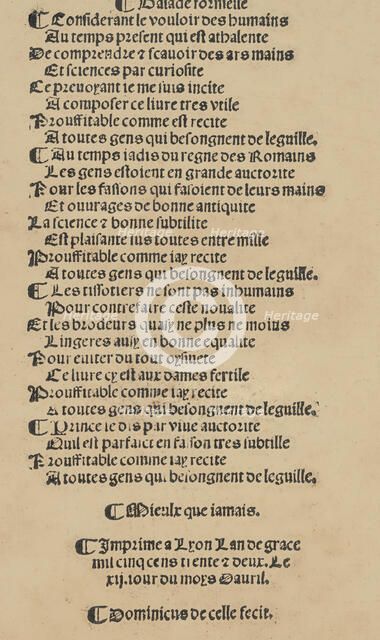 Balade formelle
Considerant le vouloir des humains
Au temps present qui est athalente
De comprendre ⁊ scauoir des ars mains
Et sciences par curiosite
Ce preuoyant ie me suis incite
A composer ce liure tres vtile
Prouffitable comme est recite
A toutes gens qui besongnent de leguille.
Au temps iadis du regne des Romains
Les gens estoient en grande auctorite
Pour les fassons qui faisoient de leurs mains
Et ouurages de bonne antiquite
La science ⁊ bonne subtilite
Est plaisante sus toutes entre mille
Prouffitable comme iay recite
A toutes gens qui besongnent de leguille.
Les tissotiers ne sont pas inhumains
Pour contrefaire ceste noualite
Et les brodeurs quay ne plus ne moins
Lingeres aux en bonne equalite
Pour euiter du tout oysiuete
Ce liure cy est aux dames fertile
Prouffitable comme iay recite
A toutes gens qui besongnent de leguille.
Prince ie dis par viue auctorite
Quil est parfaict en fasson tres subtille
Prouffitable comme iay recite
A toutes gens qui besongnent de leguille.
Mieulx que iamais.
Imprime a Lyon Lan de grace
mil cinq cens trente ⁊ deux. Le
xij. iour du moys Dauril.
Dominicus de celle fecit.
Heritage
Heritage
Heritage
Heritage